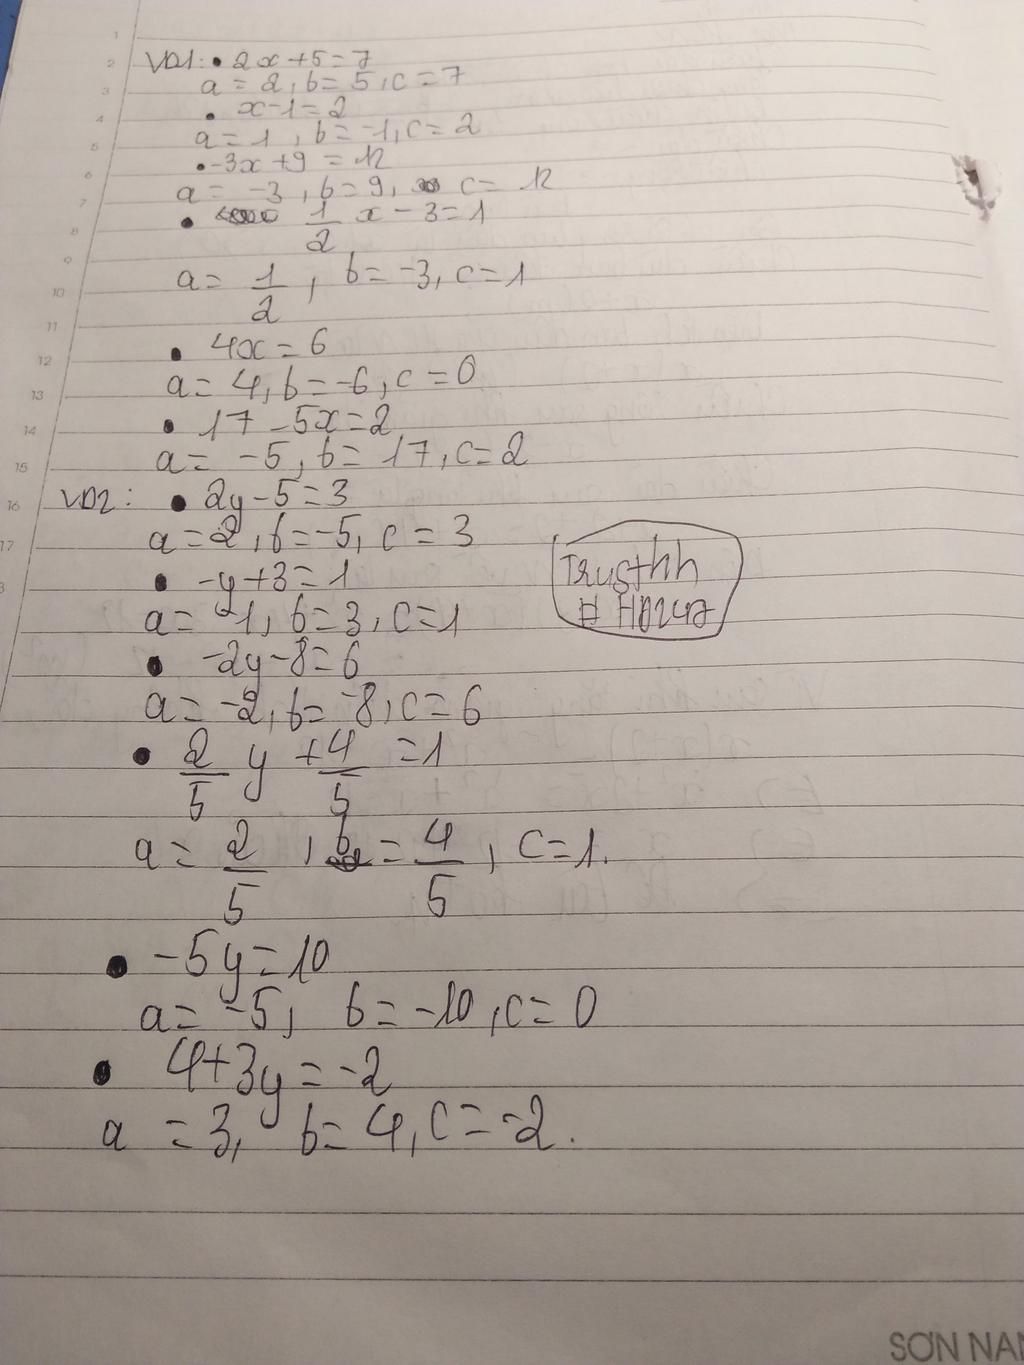 1
2 VD1: • 2x+5=7
3 a=2, b=5, c=7
4 • x-1=2
5 a=1, b=-1, c=2
6 • -3x+9=12
7 a=-3, b=9, c=12
8 • 1/2 x-3=1
9
10 a=1/2, b=-3, c=1
11
12 • 4x=6
13 a=4, b=-6, c=0
14 • 17-5x=2
15 a=-5, b=17, c=2
16 VD2: • 2y-5=3
17 a=2, b=-5, c=3
• -y+3=1
a=-1, b=3, c=1
Trusthh
# HD247
• -2y-8=6
a=-2, b=-8, c=6
• 2/5 y +4/5 =1
a=2/5, b=4/5, c=1.
• -5y=10
a=-5, b=-10, c=0
• 4+3y=-2
a=3, b=4, c=-2.
SƠN NAM